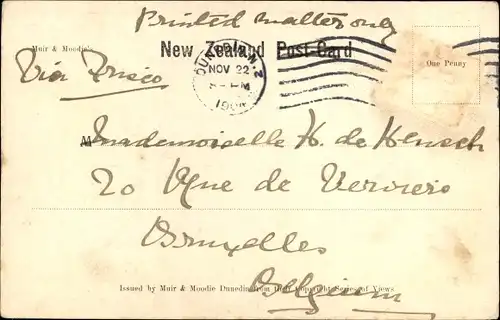 Printed matter only
Muir & Moodie's
New Zealand Post Card
Via Frisco
DUNEDIN N.Z
NOV 22
One Penny
Mademoiselle H. de
20 Rue de Verviers
Bruxelles
Belgium
Issued by Muir & Moodie Dunedin from their Copyright Series of Views